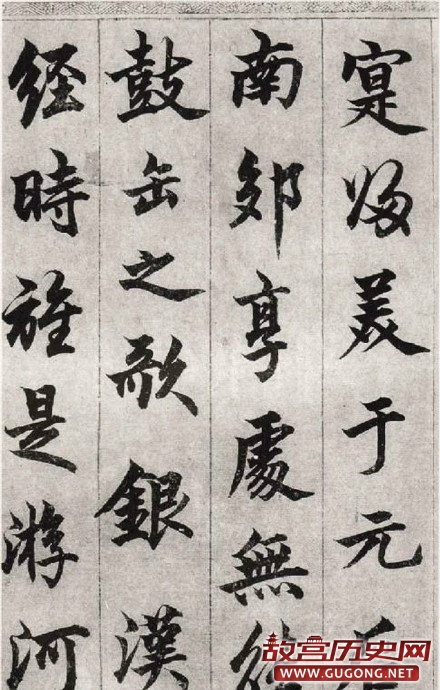 寔歸美于元
南郊享處無
鼓缶之歌銀漢
經時是游河
故宫历史网
WWW.GUGONG.NET